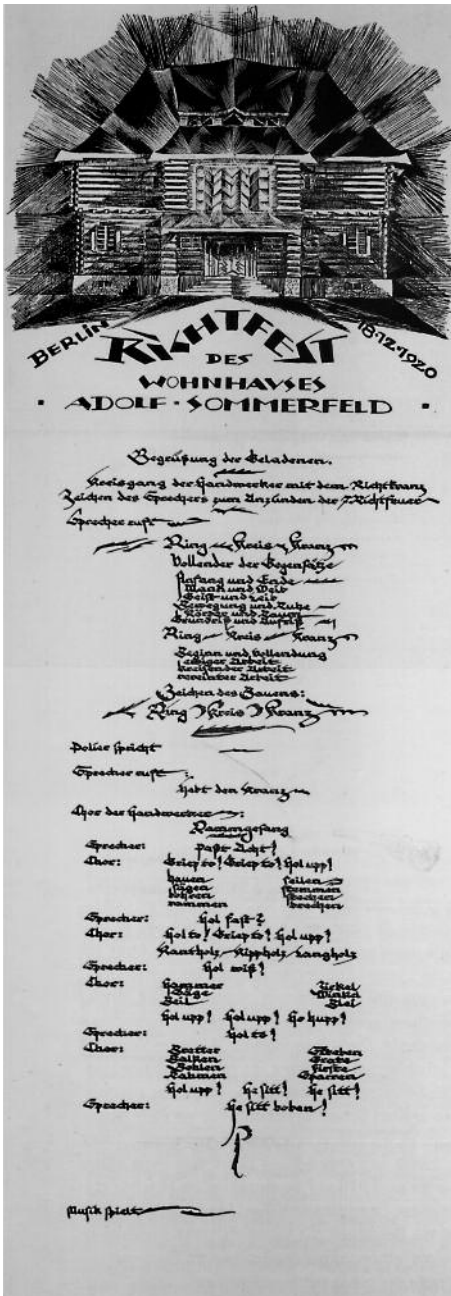 BERLIN RICHTFEST 18·12·1920
DES
WOHNHAVSES
· ADOLF · SOMMERFELD ·
Begrüßung der Geladenen.
Kreisgang der Handwerker mit dem Richtkranz
Zeichen des Sprechers zum Anzünden der 7 Richtfeuer
Sprecher ruft
Ring Kreis Kranz
Vollender der Gegensätze
Anfang und Ende
Mann und Weib
Geist und Leib
Bewegung und Ruhe
Körper und Raum
Grundriß und Aufriß
Ring Kreis Kranz
Beginn und Vollendung
lediger Arbeit
kreisender Arbeit
vereinter Arbeit
Zeichen des Bauens:
Ring Kreis Kranz
Polier spricht
Sprecher ruft:
Hebt den Kranz
Chor der Handwerker:
Rammgesang
Sprecher: Paßt Acht!
Chor: Griep to! Griep to! Hol upp!
hauen feilen
sägen stemmen
bohren stechen
rammen brechen
Sprecher: Hol fast?
Chor: Hol to! Griep to! Hol upp!
Kantholz Kippholz Langholz
Sprecher: Hol wiß!
Chor: Hammer Zirkel
Säge Winkel
Beil Blei
Hol upp! Hol upp! He hupp!
Sprecher: Hol to!
Chor: Bretter Streben
Balken Grate
Bohlen Firste
Rahmen Sparren
Hol upp! He sitt! He sitt!
Sprecher: He sitt boben!
Musik spielt